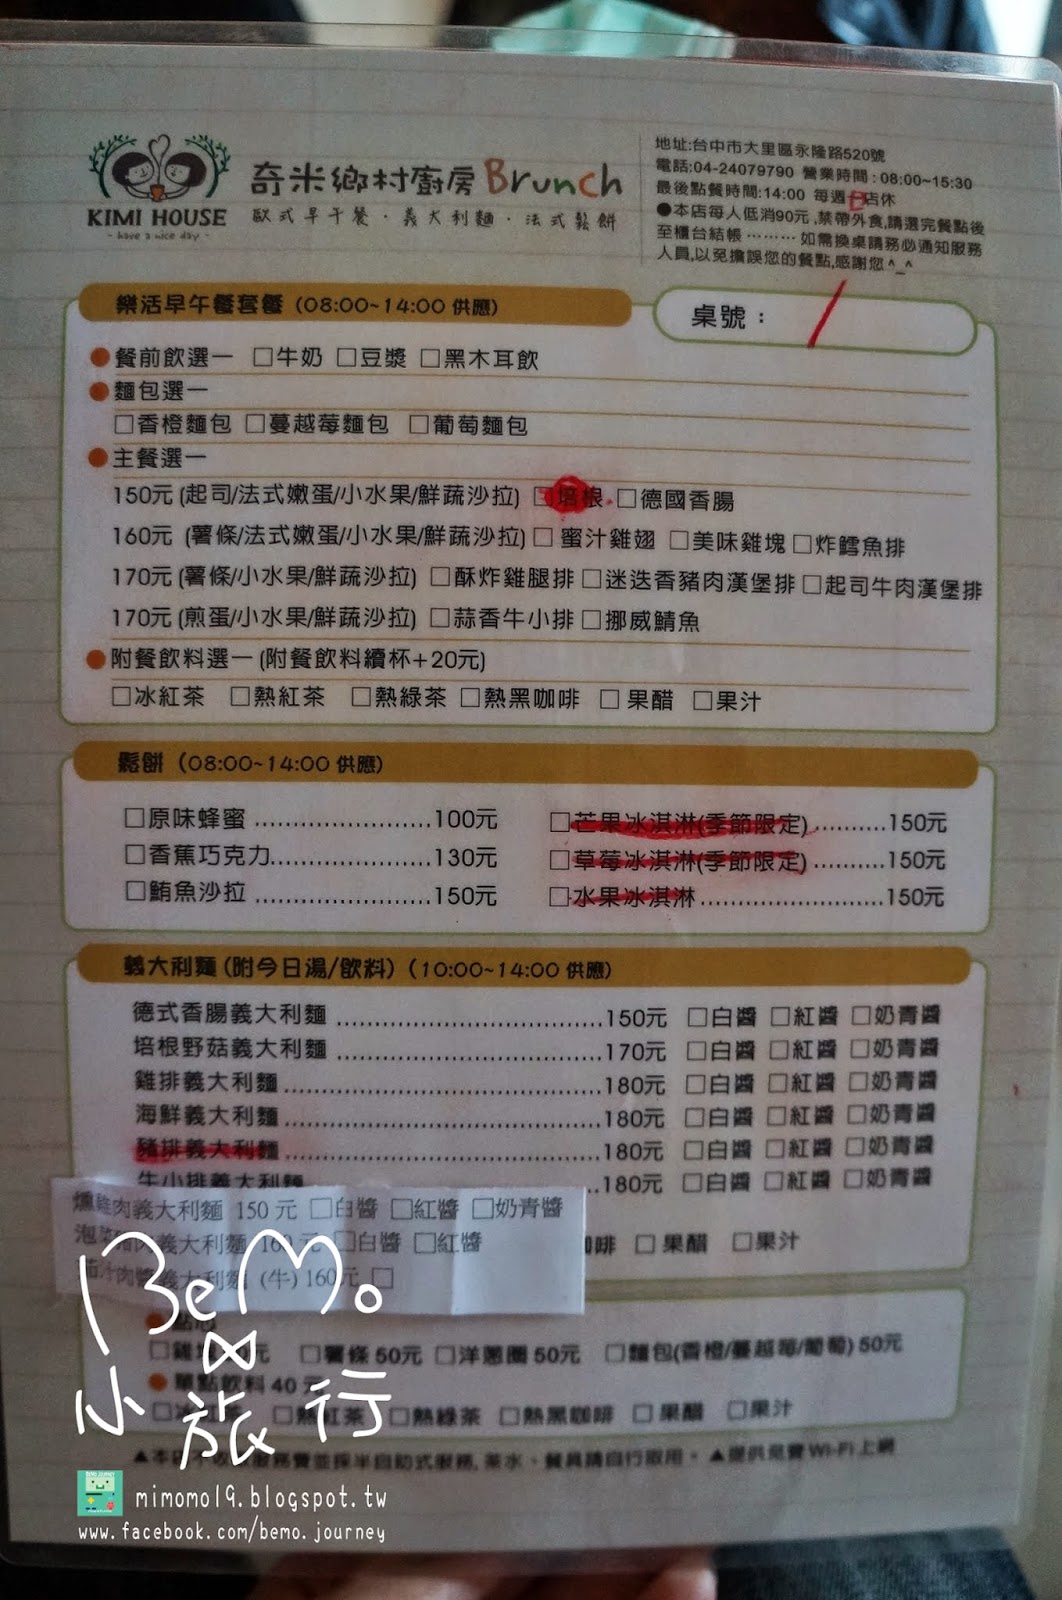 KIMI HOUSE
- have a nice day -
奇米鄉村廚房 Brunch
歐式早午餐・義大利麵・法式鬆餅
地址:台中市大里區永隆路520號
電話:04-24079790 營業時間:08:00~15:30
最後點餐時間:14:00 每週日店休
●本店每人低消90元,禁帶外食,請選完餐點後
至櫃台結帳⋯⋯⋯如需換桌請務必通知服務
人員,以免擔誤您的餐點,感謝您^_^
樂活早午餐套餐 (08:00~14:00 供應)
桌號:
●餐前飲選一 □牛奶 □豆漿 □黑木耳飲
●麵包選一
□香橙麵包 □蔓越莓麵包 □葡萄麵包
●主餐選一
150元 (起司/法式嫩蛋/小水果/鮮蔬沙拉) □培根 □德國香腸
160元 (薯條/法式嫩蛋/小水果/鮮蔬沙拉) □蜜汁雞翅 □美味雞塊 □炸鱈魚排
170元 (薯條/小水果/鮮蔬沙拉) □酥炸雞腿排 □迷迭香豬肉漢堡排 □起司牛肉漢堡排
170元 (煎蛋/小水果/鮮蔬沙拉) □蒜香牛小排 □挪威鯖魚
●附餐飲料選一 (附餐飲料續杯+20元)
□冰紅茶 □熱紅茶 □熱綠茶 □熱黑咖啡 □果醋 □果汁
鬆餅 (08:00~14:00 供應)
□原味蜂蜜..........................100元
□香蕉巧克力........................130元
□鮪魚沙拉..........................150元
□芒果冰淇淋(季節限定)..........150元
□草莓冰淇淋(季節限定)..........150元
□水果冰淇淋..........................150元
義大利麵 (附今日湯/飲料) (10:00~14:00 供應)
德式香腸義大利麵..................................150元 □白醬 □紅醬 □奶青醬
培根野菇義大利麵..................................170元 □白醬 □紅醬 □奶青醬
雞排義大利麵........................................180元 □白醬 □紅醬 □奶青醬
海鮮義大利麵........................................180元 □白醬 □紅醬 □奶青醬
豬排義大利麵........................................180元 □白醬 □紅醬 □奶青醬
牛小排義大利麵..180元 □白醬 □紅醬 □奶青醬
燻雞肉義大利麵 150元 □白醬 □紅醬 □奶青醬
泡菜豬肉義大利麵 160元 □白醬 □紅醬
茄汁肉醬義大利麵 (牛) 160元 □
咖啡 □果醋 □果汁
●點心
□薯條50元 □洋蔥圈50元 □麵包(香橙/蔓越莓/葡萄)50元
●單點飲料40元
□冰紅茶 □熱紅茶 □熱綠茶 □熱黑咖啡 □果醋 □果汁
▲本店不收服務費並採半自助式服務,茶水、餐具請自行取用。 ▲提供免費Wi-Fi上網
BeMo
小旅行
mimomo19.blogspot.tw
www.facebook.com/bemo.journey